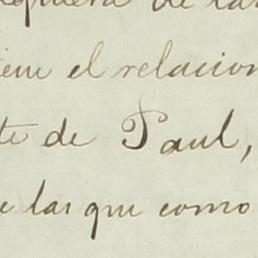 de la
el relacion
te de Paul,
e las que como